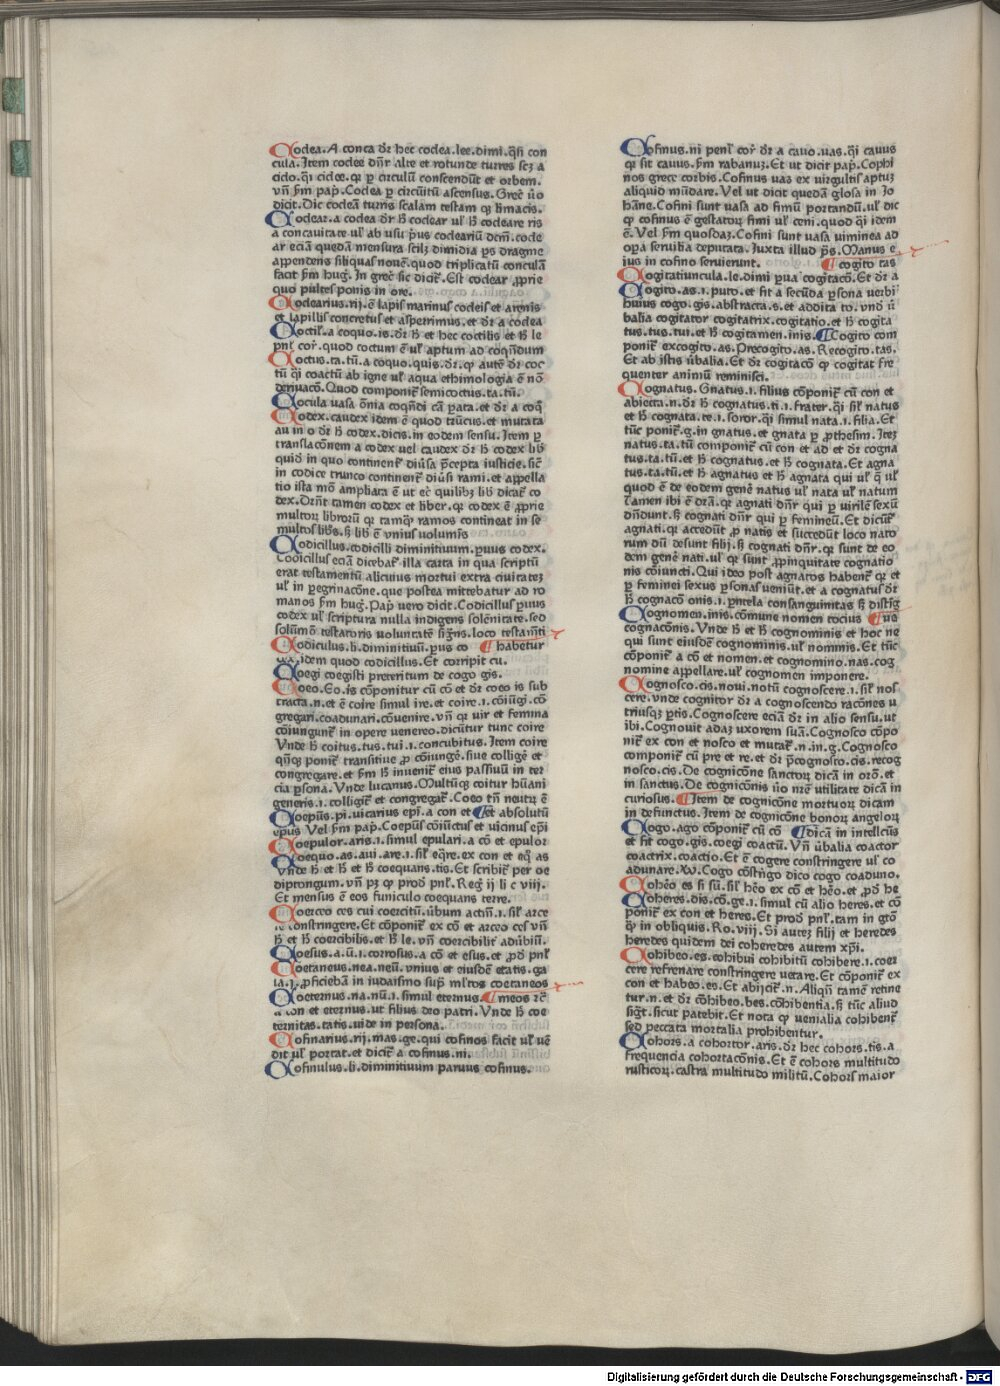 Coclea. A conca dr̄ hec coclea. lee. dimi. q̄si con
cula. Item coclee dn̄r alte et rotunde turres scz a
ciclo. q̄i ciclee. qr p circulū conscendūt et orbem.
vn̄ ẜm pap̄. Coclea p circūitū ascensus. Grec̄ ūo
dicit. Dic cocleā turris scalam testam qz limacis.
Coclear. a coclea dr̄ h̄ coclear ul̄ h̄ cocleare ris
a concavitate ul̄ ab usu p̄us cocleariū dcm̄. cocle
ar eciā quedā mensura scilz dimidia ps dragme
appendens siliquas nouē. quod triplicatū conculā
facit ẜm huḡ. In grec̄ sic dicit̄. Est coclear ꝓprie
quo pultes ponis in ore.
Coclearius. rij. ē lapis marinus cocleis et arenis
et lapillis concretus et asperrimus. et dr̄ a coclea
Coctil̄. a coquo. is. dr̄ h̄ et hec coctilis et h̄ le
pnl̄ cor̄. quod coctum ē ul̄ aptum ad coqn̄dum
Coctus. ta. tū. a coquo. quis. dr̄. qꝫ autē dr̄ coc
tū q̄i coactū ab igne ul̄ aqua ethimologia ē nō
derivacō. Quod componit̄ semicoctus. ta. tū.
Cocula vasa om̄ia coqn̄di cā p̄ata. et dr̄ a coq̄
Codex. caudex idem ē quod trūcus. et mutata
au in o dr̄ h̄ codex. dicis. in eodem sensu. Item p
translacōnem a codex vel caudex dr̄ h̄ codex lib̄
quid in quo continent̄ diūsa p̄cepta iusticie. sic̄
in codice trunco continent̄ diūsi rami. et appella
tio ista mō ampliata ē ut ec̄ quilibz lib̄ dicat̄ co
dex. Drn̄t tamen codex et liber. qr codex ē ꝓprie
multoꝝ libroꝝ qr tamqꝫ ramos contineat in se
multos lib̄s. ẜꝫ lib̄ ē vnius volumīs
Codicillus. codicilli diminitiuum. p̄uus codex.
Codicillus eciā dicebat̄ illa carta in qua scriptū
erat testamentū alicuius mortui extra ciuitatez
ul̄ in pegrinacōne. que postea mittebatur ad ro
manos ẜm huḡ. Pap̄ vero dicit. Codicillus p̄uus
codex ul̄ scriptura nulla indigens solēnitate. sed
solūmō testatoris voluntatē sig̅ns. loco testam̄ti
Codiculus. li. diminitiuū. p̄us co ¶ habetur
dex. idem quod codicillus. Et corripit cu.
Coegi coegisti preteritum de cogo gis.
Coeo. Eo. is cōponitur cū cō et dr̄ coeo is sub
tracta. n. et ē coire simul ire. et coire. ı. cōiūgi. cō
gregari. coadunari. cōvenire. vn̄ qr vir et femina
cōiungunt̄ in opere venereo. dicūtur tunc coire
Vnde h̄ coitus. tus. tui. ı. concubitus. Item coire
qn̄qꝫ ponit̄ transitiue ꝓ cōiungē. siue colligē et
congregare. et ẜm h̄ inuenit̄ eius passiuū in ter
cia p̄sona. Vnde lucanus. Multūqꝫ coitur hūani
generis. ı. colligit̄ et congregat̄. Coeo tn̄ neutꝝ ē
Coepūs. pi. vicarius epi̅. a con et ¶ et absolutū
epūs Vel ẜm pap̄. Coepūs cōiūctus et vicinus ep̄i
Coepulor. aris. ı. simul epulari. a cō et epulor
Coequo. as. aui. are. ı. sil̄ eq̄re. ex con et eq̄ as
vnde h̄ et h̄ coequans. tis. Et scribit̄ per oe
diptongum. vn̄ pꝫ qꝫ prod̄ pnl̄. Reg̅ ij li c viij.
Et mensus ē eos funiculo coequans terre.
Coerceo ces cui coercitū. ūbum actiū. ı. sil̄ arce
re constringere. Et cōponit̄ ex cō et arceo ces vn̄
h̄ et h̄ coercibilis. et h̄ le. vn̄ coercibilit̄ aduibiū.
Coesus. a. ū. ı. corrosus. a cō et esus. et ꝓd̄ pnl̄
Coetaneus. nea. neū. vnius et eiusdē etatis. ga
la. ı. ꝓficiebā in iudaismo sup̄ ml̄tos coetaneos
Coeternus. na. nū. ı. simul eternus. ¶ meos rc̄
a con et eternus. ut filius deo patri. Vnde h̄ coe
ternitas. tatis. uide in persona.
Cofinarius. rij. mas. ge. qui cofinos facit ul̄ vē
dit ul̄ portat. et dicit̄ a cofinus. ni.
Cofinulus. li. diminitiuum paruus cofinus.
Cofinus. ni penl̄ cor̄ dr̄ a cauo. uas. q̄i cauus
qr sit cauus. ẜm rabanuꝫ. Et ut dicit pap̄. Cophi
nos grece corbis. Cofinus uas ex virgultis aptuꝫ
aliquid mūdare. Vel ut dicit quedā glosa in Jo
hāne. Cofini sunt uasa ad fimū portandū. ul̄ dic
qꝫ cofinus ē gestatoꝝ fimi ul̄ ceni. quod q̄i idem
ē. Vel ẜm quosdaꝫ. Cofini sunt uasa viminea ad
op̄a seruilia deputata. Juxta illud p̄s. Manus e
ius in cofino seruierunt. ¶ cogito tas
Cogitatiuncula. le. dimi p̄ua cogitacō. Et dr̄ a
Cogito. as. ı. puto. et fit a secūda p̄sona verbi
huius cogo. gis. abstracta. s. et addita to. vnd̄ ū
balia cogitator cogitatrix. cogitatio. et h̄ cogita
tus. tus. tui. et h̄ cogitamen. inis. ¶ Cogito com
ponit̄ excogito. as. Precogito. as. Recogito. tas.
Et ab istis ūbalia. Et dr̄ cogitacō qꝫ cogitat fre
quenter animū reminisci.
Cognatus. Gnatus. ı. filius cōponit̄ cū con et
abiecta. n. dr̄ h̄ cognatus. ti. ı. frater. q̄i sil̄ natus
et h̄ cognata. te. ı. soror. q̄i simul nata. ı. filia. Et
tūc ponit̄. g. in gnatus. et gnata p ꝓthesim. Iteꝫ
natus. ta. tū componit̄ cū con et ad et dr̄ cogna
tus. ta. tū. et h̄ cognatus. et h̄ cognata. Et agna
tus. ta. tū. et h̄ agnatus et h̄ agnata qui ul̄ q̄ ul̄
quod ē de eodem genē natus ul̄ nata ul̄ natum
Tamen ibi ē dr̄a. qr agnati dn̄r qui p virilē sexū
dn̄dunt. ẜꝫ cognati dn̄r qui p femineū. Et dicūt̄
agnati. qr accedūt ꝓ natis et succedūt loco nato
rum dū desunt filij. ẜꝫ cognati dn̄r. qr sunt de eo
dem genē nati. ul̄ qr sunt ꝓpinquitate cognatio
nis cōiuncti. Qui ideo post agnatos habent̄ qr et
p feminei sexus p̄sonas veniūt. et a cognatus dr̄
h̄ cognacō onis. ı. pn̄tela consanguinitas ẜꝫ distīg
Cognomen. inis. cōmune nomen tocius ¶ ue
cognacōnis. Vnde h̄ et h̄ cognominis et hoc ne
qui sunt eiusdē cognominis. ul̄ nominis. Et tūc̄
cōponit̄ a cō et nomen. et cognomino. nas. cog
nomine appellare. ul̄ cognomen imponere.
Cognosco. cis. noui. notū cognoscere. ı. sil̄ nos
cere. vnde cognitor dr̄ a cognoscendo racōnes u
triusqꝫ p̄tis. Cognoscere eciā dr̄ in alio sensu. ut
ibi. Cognouit adaꝫ uxorem suā. Cognosco cōpo
nit̄ ex con et nosco et mutat̄. n. in. g. Cognosco
componit̄ cū pre et re. et dr̄ p̄cognosco. cis. recog
nosco. cis. De cognicōne sanctoꝝ dicā in orō. et
in sanctus. De cognicōnis ūo nr̄e utilitate dicā in
curiosus. ¶ Item de cognicōne mortuoꝝ dicam
in defunctus. Item de cognicōne bonoꝝ angeloꝝ
Cogo. ago cōponit̄ cū cō ¶ dicā in intellc̄us
et fit cogo. gis. coegi coactū. Vn̄ ūbalia coactor
coactrix. coactio. Et ē cogere constringere ul̄ co
adunare. W. Cogo cōstn̄go dico cogo coaduno.
Cohēo es si sū. sil̄ hēo ex cō et hēo. et ꝓd̄ he
Coheres. dis. cō. ge. ı. simul cū alio heres. et cō
ponit̄ ex con et heres. Et prod̄ pnl̄. tam in gtō
q̄ꝫ in obliquis. Ro. viij. Si auteꝫ filij et heredes
heredes quidem dei coheredes autem xp̄i.
Cohibeo. es. cohibui cohibitū cohibere. ı. coer
cere refrenare constringere uetare. Et cōponit̄ ex
con et habeo. es. Et abijcit̄. n. Aliqn̄ tamē retine
tur. n. et dr̄ cōhibeo. bes. cōhibentia. ẜꝫ tūc aliud
sig̅t. sicut patebit. Et nota qꝫ uenialia cohibent̄
sed peccata mortalia prohibentur.
Cohors. a cohortor. aris. dr̄ hec cohors. tis. a
frequencia cohortacōnis. Et ē cohors multitudo
rusticoꝝ. castra multitudo militū. Cohors maior
Digitalisierung gefördert durch die Deutsche Forschungsgemeinschaft - DFG